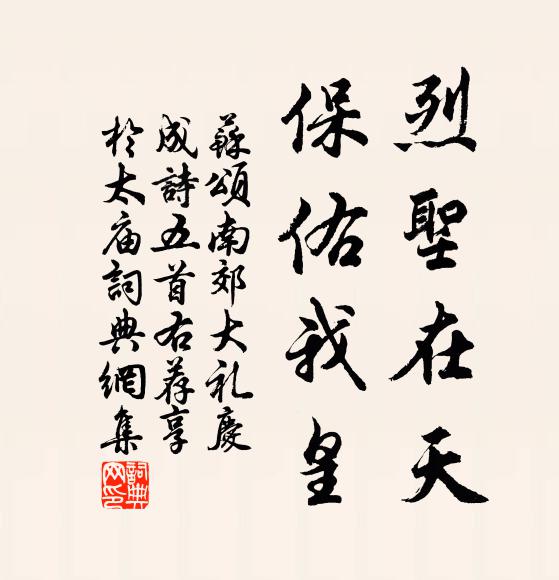 烈聖在天
保佑我皇
蘇頌南郊大礼慶
成詩五首右荐享
於太庙詞典網集
詞典
网印